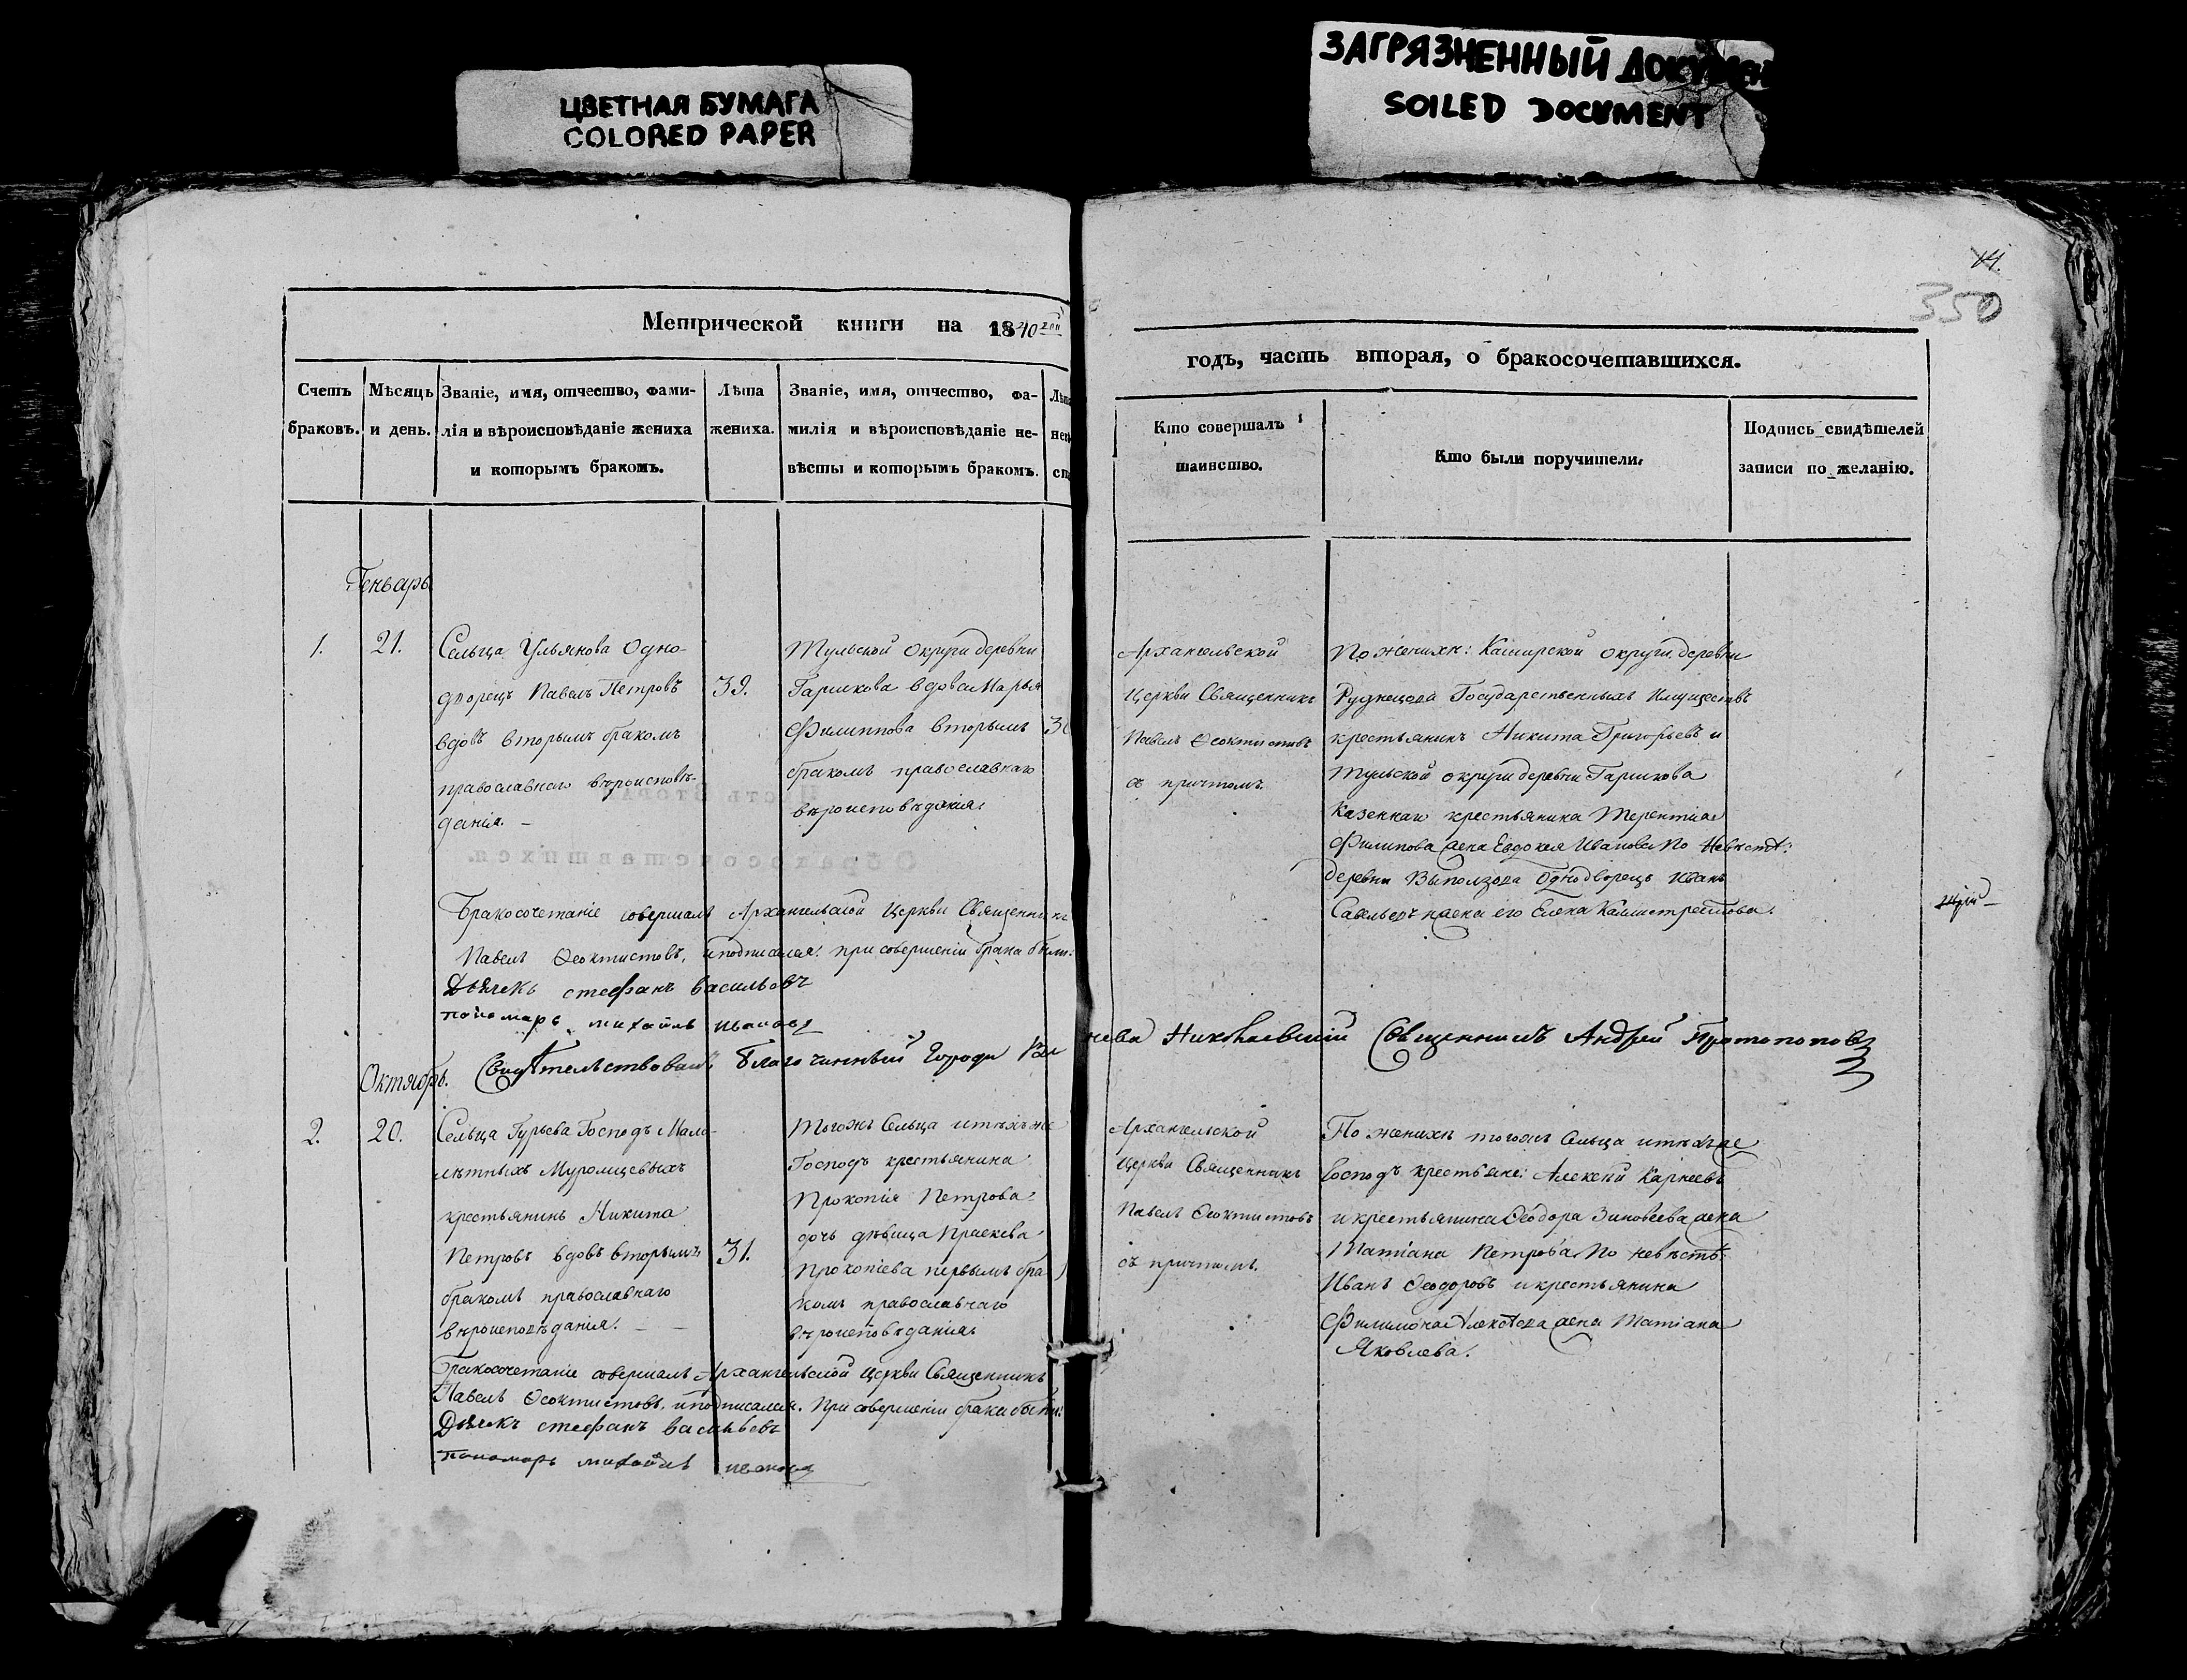 ЦВЕТНАЯ БУМАГА
COLORED PAPER
ЗАГРЯЗНЕННЫЙ
SOILED DOCUMENT
350
Метрической книги на 1840
Счетъ браковъ.
Мѣсяцъ и день.
Званіе, имя, отчество, фами-
лія и вѣроисповѣданіе жениха
и которымъ бракомъ.
Лѣта
жениха.
Званіе, имя, отчество, фа-
милія и вѣроисповѣданіе не-
вѣсты и которымъ бракомъ.
годъ, часть вторая, о бракосочетавшихся.
Кто совершалъ
таинство.
Кто были поручители.
Подпись свидѣтелей
записи по желанію.
Генварь
1.
21.
Сельца Ульянова Одно-
дворецъ Павелъ Петровъ
вдовъ вторымъ бракомъ
православнаго вѣроисповѣ-
данія. —
39.
Тульской округи деревни
Гаршкова вдова Марья
Филиппова вторымъ
бракомъ православнаго
вѣроисповѣданія.
Архангельской
Церкви Священникъ
Павелъ Ѳеоктистовъ
съ причтомъ.
По женихѣ: Каширской округи деревни
Государственныхъ Имуществъ
крестьянинъ Никита Григорьевъ и
Тульской округи деревни Гаршкова
казеннаго крестьянина Терентія
Филипова жена Евдокея Иванова По Невѣстѣ:
деревни Выползова Однодворецъ Иванъ
Савельевъ жена его Елена Калистратова.
Бракосочетаніе совершалъ Архангельской Церкви Священникъ
Павелъ Ѳеоктистовъ, и подписался. при совершеніи брака были:
Дьячекъ стефанъ васильевъ
пономарь михаилъ ивановъ
Свидѣтельствовалъ Благочинный Города Николаевскій Священникъ Андрей Протопоповъ
Октябрь.
2.
20.
Сельца Гурьева Господъ Мало-
лѣтныхъ Муромцевыхъ
крестьянинъ Никита
Петровъ вдовъ вторымъ
бракомъ православнаго
вѣроисповѣданія. —
31.
Тогожъ Сельца и тѣхъ же
Господъ крестьянина
Прокопія Петрова
дочь дѣвица Праскева
Прокопіева первымъ бра-
комъ православнаго
вѣроисповѣданія.
Архангельской
Церкви Священникъ
Павелъ Ѳеоктистовъ
съ причтомъ.
По женихѣ тогожъ Сельца и тѣхъ же
Господъ крестьяне: Алексѣй Карнеевъ
и крестьянина Ѳеодора Зиновеева жена
Татіана Петрова По невѣстѣ:
Иванъ Ѳеодоровъ и крестьянина
Филимона Алексѣева жена Татіана
Яковлева.
Бракосочетаніе совершалъ Архангельской Церкви Священникъ
Павелъ Ѳеоктистовъ, и подписался. При совершеніи брака были:
Дьячекъ стефанъ васильевъ
пономарь михаилъ ивановъ